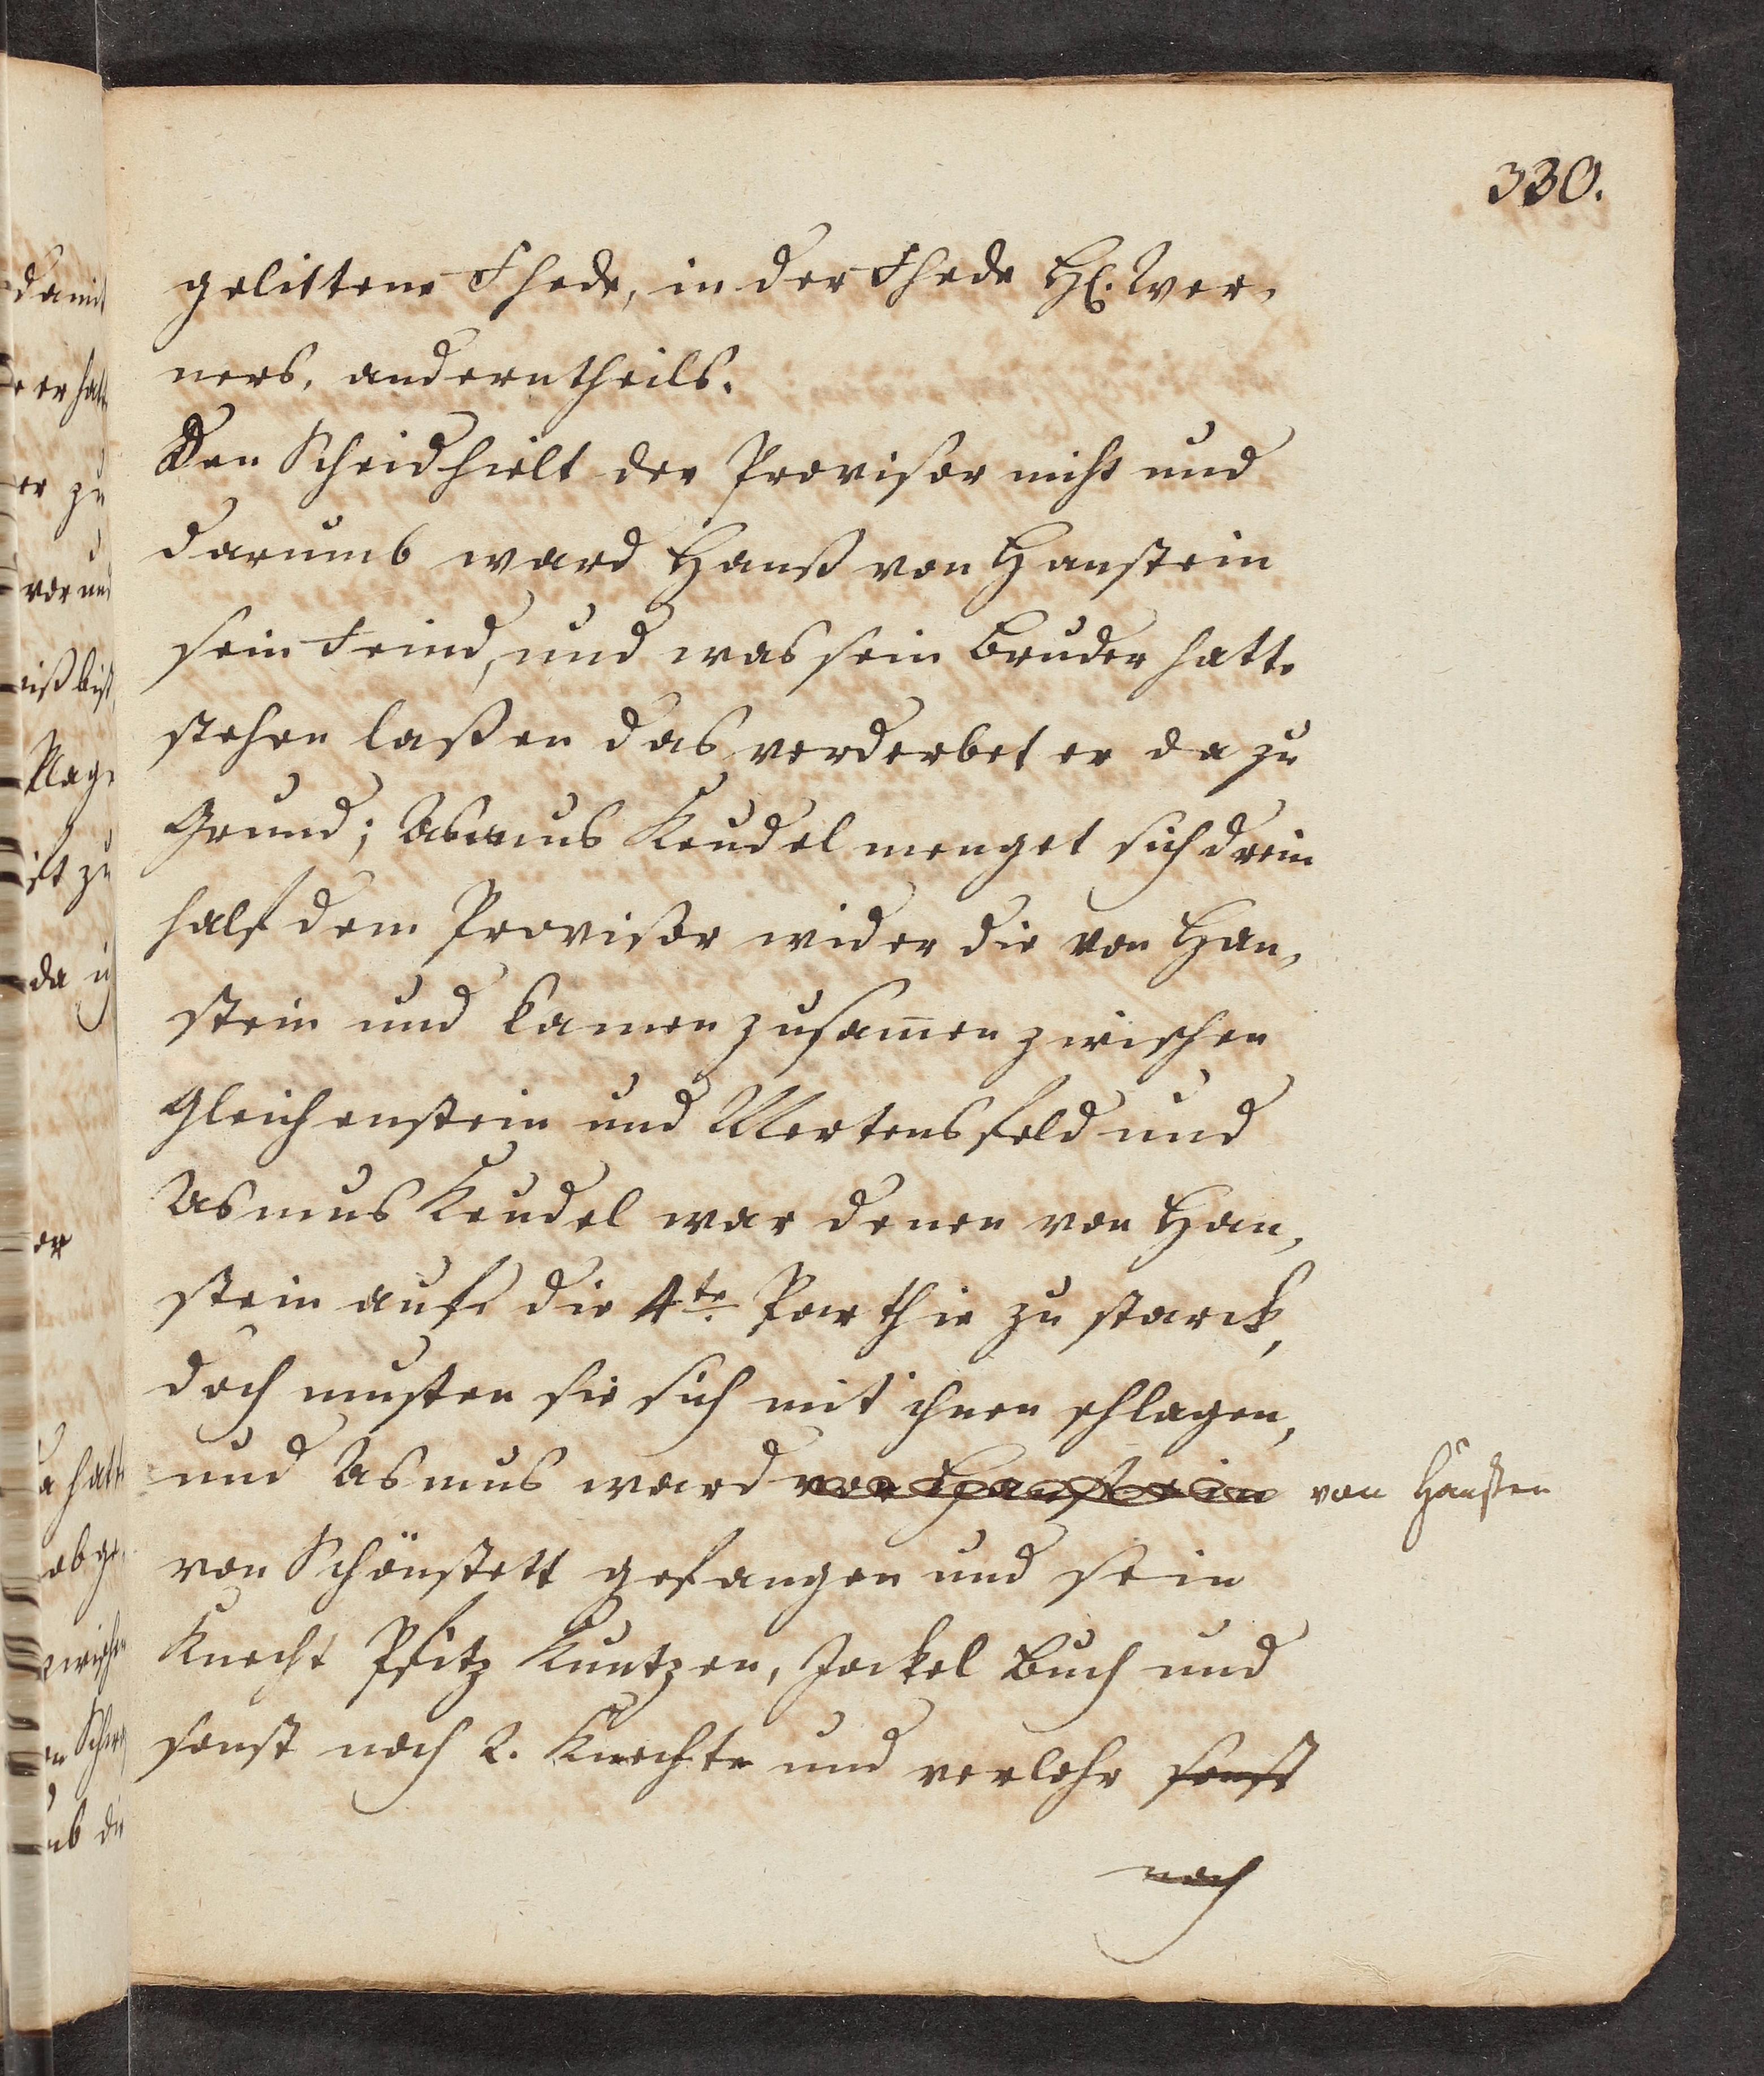 330.
gelittene Fhede, in der Fhede H. Wer,
ners, anderntheils.
Den Scheid hielt der Provisor nicht und
darumb ward Hanß von Hanstein
sein Feind, und was sein Bruder hatte
stehen laßen das verderbet er da zu
Grund; Asmus Keudel menget sich drein
half dem Provisor wider die von Han,
stein und kamen zusam̄en zwischen
Gleichenstein und Mertensfeld und
Asmus Keudel war denen von Han,
stein aufs die 4te. Parthie zu starck,
doch musten sie sich mit ihnen schlagen,
und Asmus ward von Hanstein von Hanßen
von Schönstett gefangen und sein
Knecht Pfitz Kuntzen, Jockel Buch und
sonst noch 2. Knechte und verlohr sonst
noch